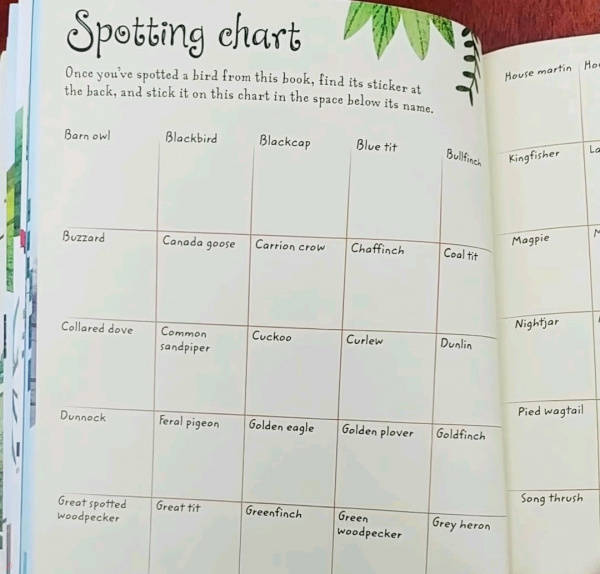 Spotting chart
Once you've spotted a bird from this book, find its sticker at
the back, and stick it on this chart in the space below its name.
Barn owl
Blackbird
Blackcap
Blue tit
Bullfinch
Buzzard
Canada goose
Carrion crow
Chaffinch
Coal tit
Collared dove
Common
sandpiper
Cuckoo
Curlew
Dunlin
Dunnock
Feral pigeon
Golden eagle
Golden plover
Goldfinch
Great spotted
woodpecker
Great tit
Greenfinch
Green
woodpecker
Grey heron
House martin
Kingfisher
Magpie
Nightjar
Pied wagtail
Song thrush